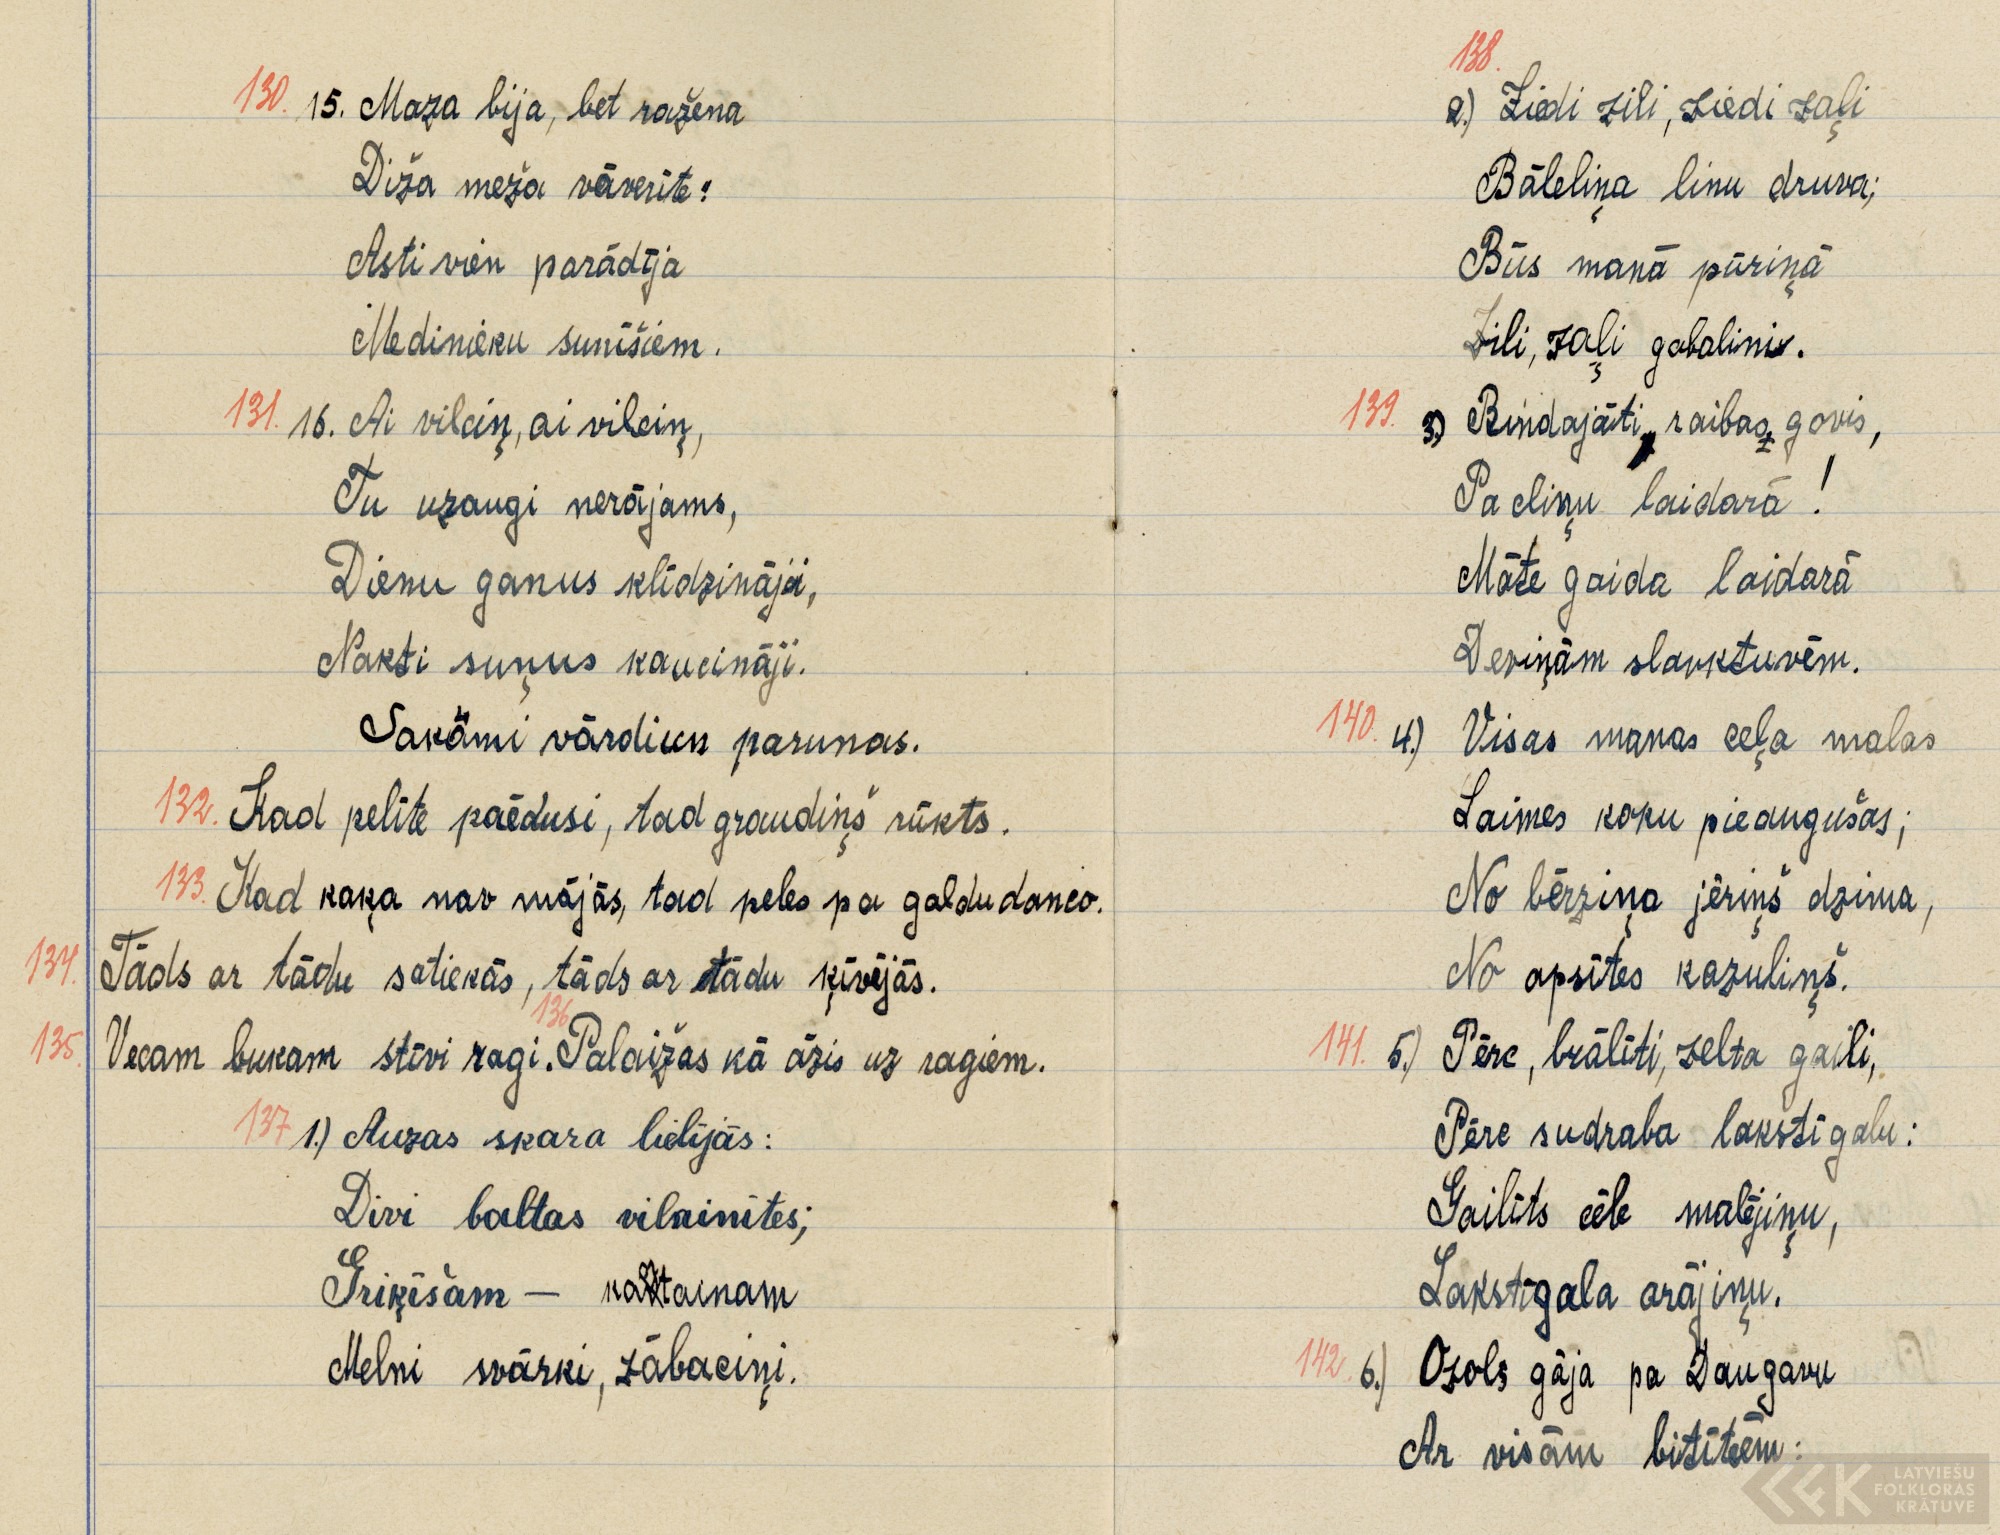 130. 15. Maza bija, betražena
Diža meža vāverīte:
Asti vien parādīja
Medinieku sunīšiem.
131. 16. Ai vilciņ, ai vilciņ,
Tu uzaugi nerājams,
Dienu ganus klīdzināji,
Nakti suņus kaucināji.
Sakāmi vārdi un parunas.
132. Kad pelīte paēdusi, tad graudiņš rūkts.
133. Kad kaķa nav mājās, tad peles pa galdu danco.
134. Tāds ar tādu satiekās, tāds ar tādu ķīvējās.
135. Vecam bukam stīvi ragi. 136 Palaižas kā āzis uz ragiem.
137 1.) Auzas skara lielījās:
Divi baltas vilainītes;
Griķīšam — kantainam
Melni svārki, zābaciņi.
138.
2.) Ziedi zili, ziedi zaļi
Bāleliņa linu druva;
Būs manā pūriņā
Zili, zaļi gabaliņi.
139. 3) Bindajāti, raibas govis,
Pa cliņu laidarā!
Māte gaida laidarā
Deviņām slauktuvēm.
140. 4.) Visas manas ceļa malas
Laimes koku pieaugušas;
No bērziņa jēriņš dzima,
No apsītes kazuliņš.
141. 5.) Pērc, brālīti, zelta gaili,
Pērc sudraba lakstīgalu:
Gailīts cēle malējiņu,
Lakstīgala arājiņu.
142. 6.) Ozols gāja pa Daugavu
Ar visām bitītēm:
LATVIEŠU
FOLKLORAS
KRĀTUVE